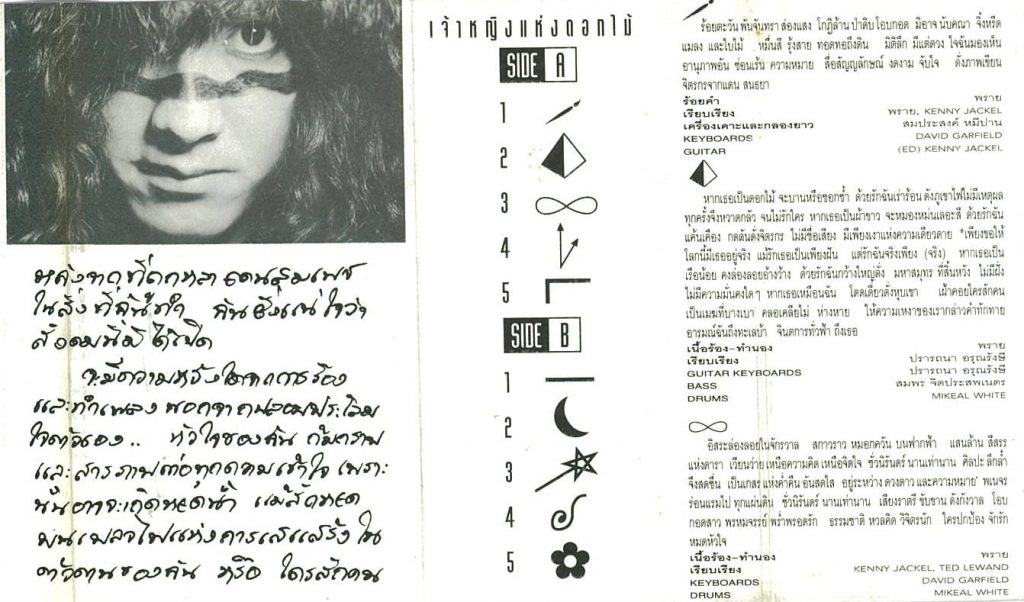 หลัง
ในสิ่งที่ฉันทำ ฉันยังแน่ใจว่า
จะมีความหวังใดจากการร้อง
และทำเพลง นอกจากปลอบประโลม
ใจตัวเอง.. หัวใจของฉัน
และสารภาพต่อทุกความเข้าใจ เพราะ
นั่นอาจจะเกิดหยดน้ำ แม้สักหยด
บนเปลวไฟแห่งการเสแสร้ง ใน
ตัวตนของฉัน หรือ ใครสักคน
เจ้าหญิงแห่งดอกไม้
SIDE A
1
2
3
4
5
SIDE B
1
2
3
4
5
ร้อยตะวัน พันจันทรา ส่องแสง โกฏิล้าน ป่าดิบ โอบกอด มิอาจ นับคณา จิ้งหรีด
แมลง และใบไม้ หมื่นสี รุ้งสาย ทอดทอถึงดิน มิติลึก มีแต่ดวง ใจฉันมองเห็น
อานุภาพอัน ซ่อนเร้น ความหมาย สื่อสัญญลักษณ์ งดงาม จับใจ ดั่งภาพเขียน
จิตรกรจากแดน สนธยา
ร้อยคำ พราย
เรียบเรียง พราย, KENNY JACKEL
เครื่องเคาะและกลองยาว สมประสงค์ หมีปาน
KEYBOARDS DAVID GARFIELD
GUITAR (ED) KENNY JACKEL
หากเธอเป็นดอกไม้ จะบานหรือชอกช้ำ ด้วยรักฉันเร่าร้อน ดังภูเขาไฟไม่มีเหตุผล
ทุกครั้งจึงหวาดกลัว จนไม่รักใคร หากเธอเป็นผ้าขาว จะหมองหม่นเลอะสี ด้วยรักฉัน
แค้นเคือง กดดันดั่งจิตรกร ไม่มีชื่อเสียง มีเพียงเงาแห่งความเดียวดาย *เพียงขอให้
โลกนี้มีเธออยู่จริง แม้รักเธอเป็นเพียงฝัน แต่รักฉันจริงเพียง (จริง) หากเธอเป็น
เรือน้อย คงล่องลอยอ้างว้าง ด้วยรักฉันกว้างใหญ่ดั่ง มหาสมุทร ที่สิ้นหวัง ไม่มีฝั่ง
ไม่มีความมั่นคงใดๆ หากเธอเหมือนฉัน โดดเดี่ยวดั่งหุบเขา เฝ้าคอยใครสักคน
เป็นเมฆที่บางเบา คลอเคลียไม่ ห่างหาย ให้ความเหงาของเรากล่าวคำทักทาย
อารมณ์ฉันถึงทะเลบ้า จินตการทั่วฟ้า ถึงเธอ
เนื้อร้อง-ทำนอง พราย
เรียบเรียง ปรารถนา อรุณรังษี
GUITAR KEYBOARDS ปรารถนา อรุณรังษี
BASS สมพร จิตประสพเนตร
DRUMS MIKEAL WHITE
อิสระล่องลอยในจักรวาล สกาวราว หมอกควัน บนฟากฟ้า แสนล้าน สีสรร
แห่งดารา เวียนว่าย เหนือความคิด เหนือจิตใจ ชั่วนิรันดร์ นานเท่านาน ศิลปะ ลึกล้ำ
จึงสดชื่น เป็นเกสร แห่งค่ำคืน อันสดใส อยู่ระหว่าง ดวงดาว และความหมาย' พเนจร
ร่อนแรมไป ทุกแผ่นดิน ชั่วนิรันดร์ นานเท่านาน เสียงราตรี ขับขาน ดังกังวาล โอบ
กอดสาว พรหมจรรย์ พร่ำพรอดรัก ธรรมชาติ หวลคิด วิจิตรนัก ใครปกป้อง จักรัก
หมดหัวใจ
เนื้อร้อง-ทำนอง พราย
เรียบเรียง KENNY JACKEL, TED LEWAND
KEYBOARDS DAVID GARFIELD
DRUMS MIKEAL WHITE